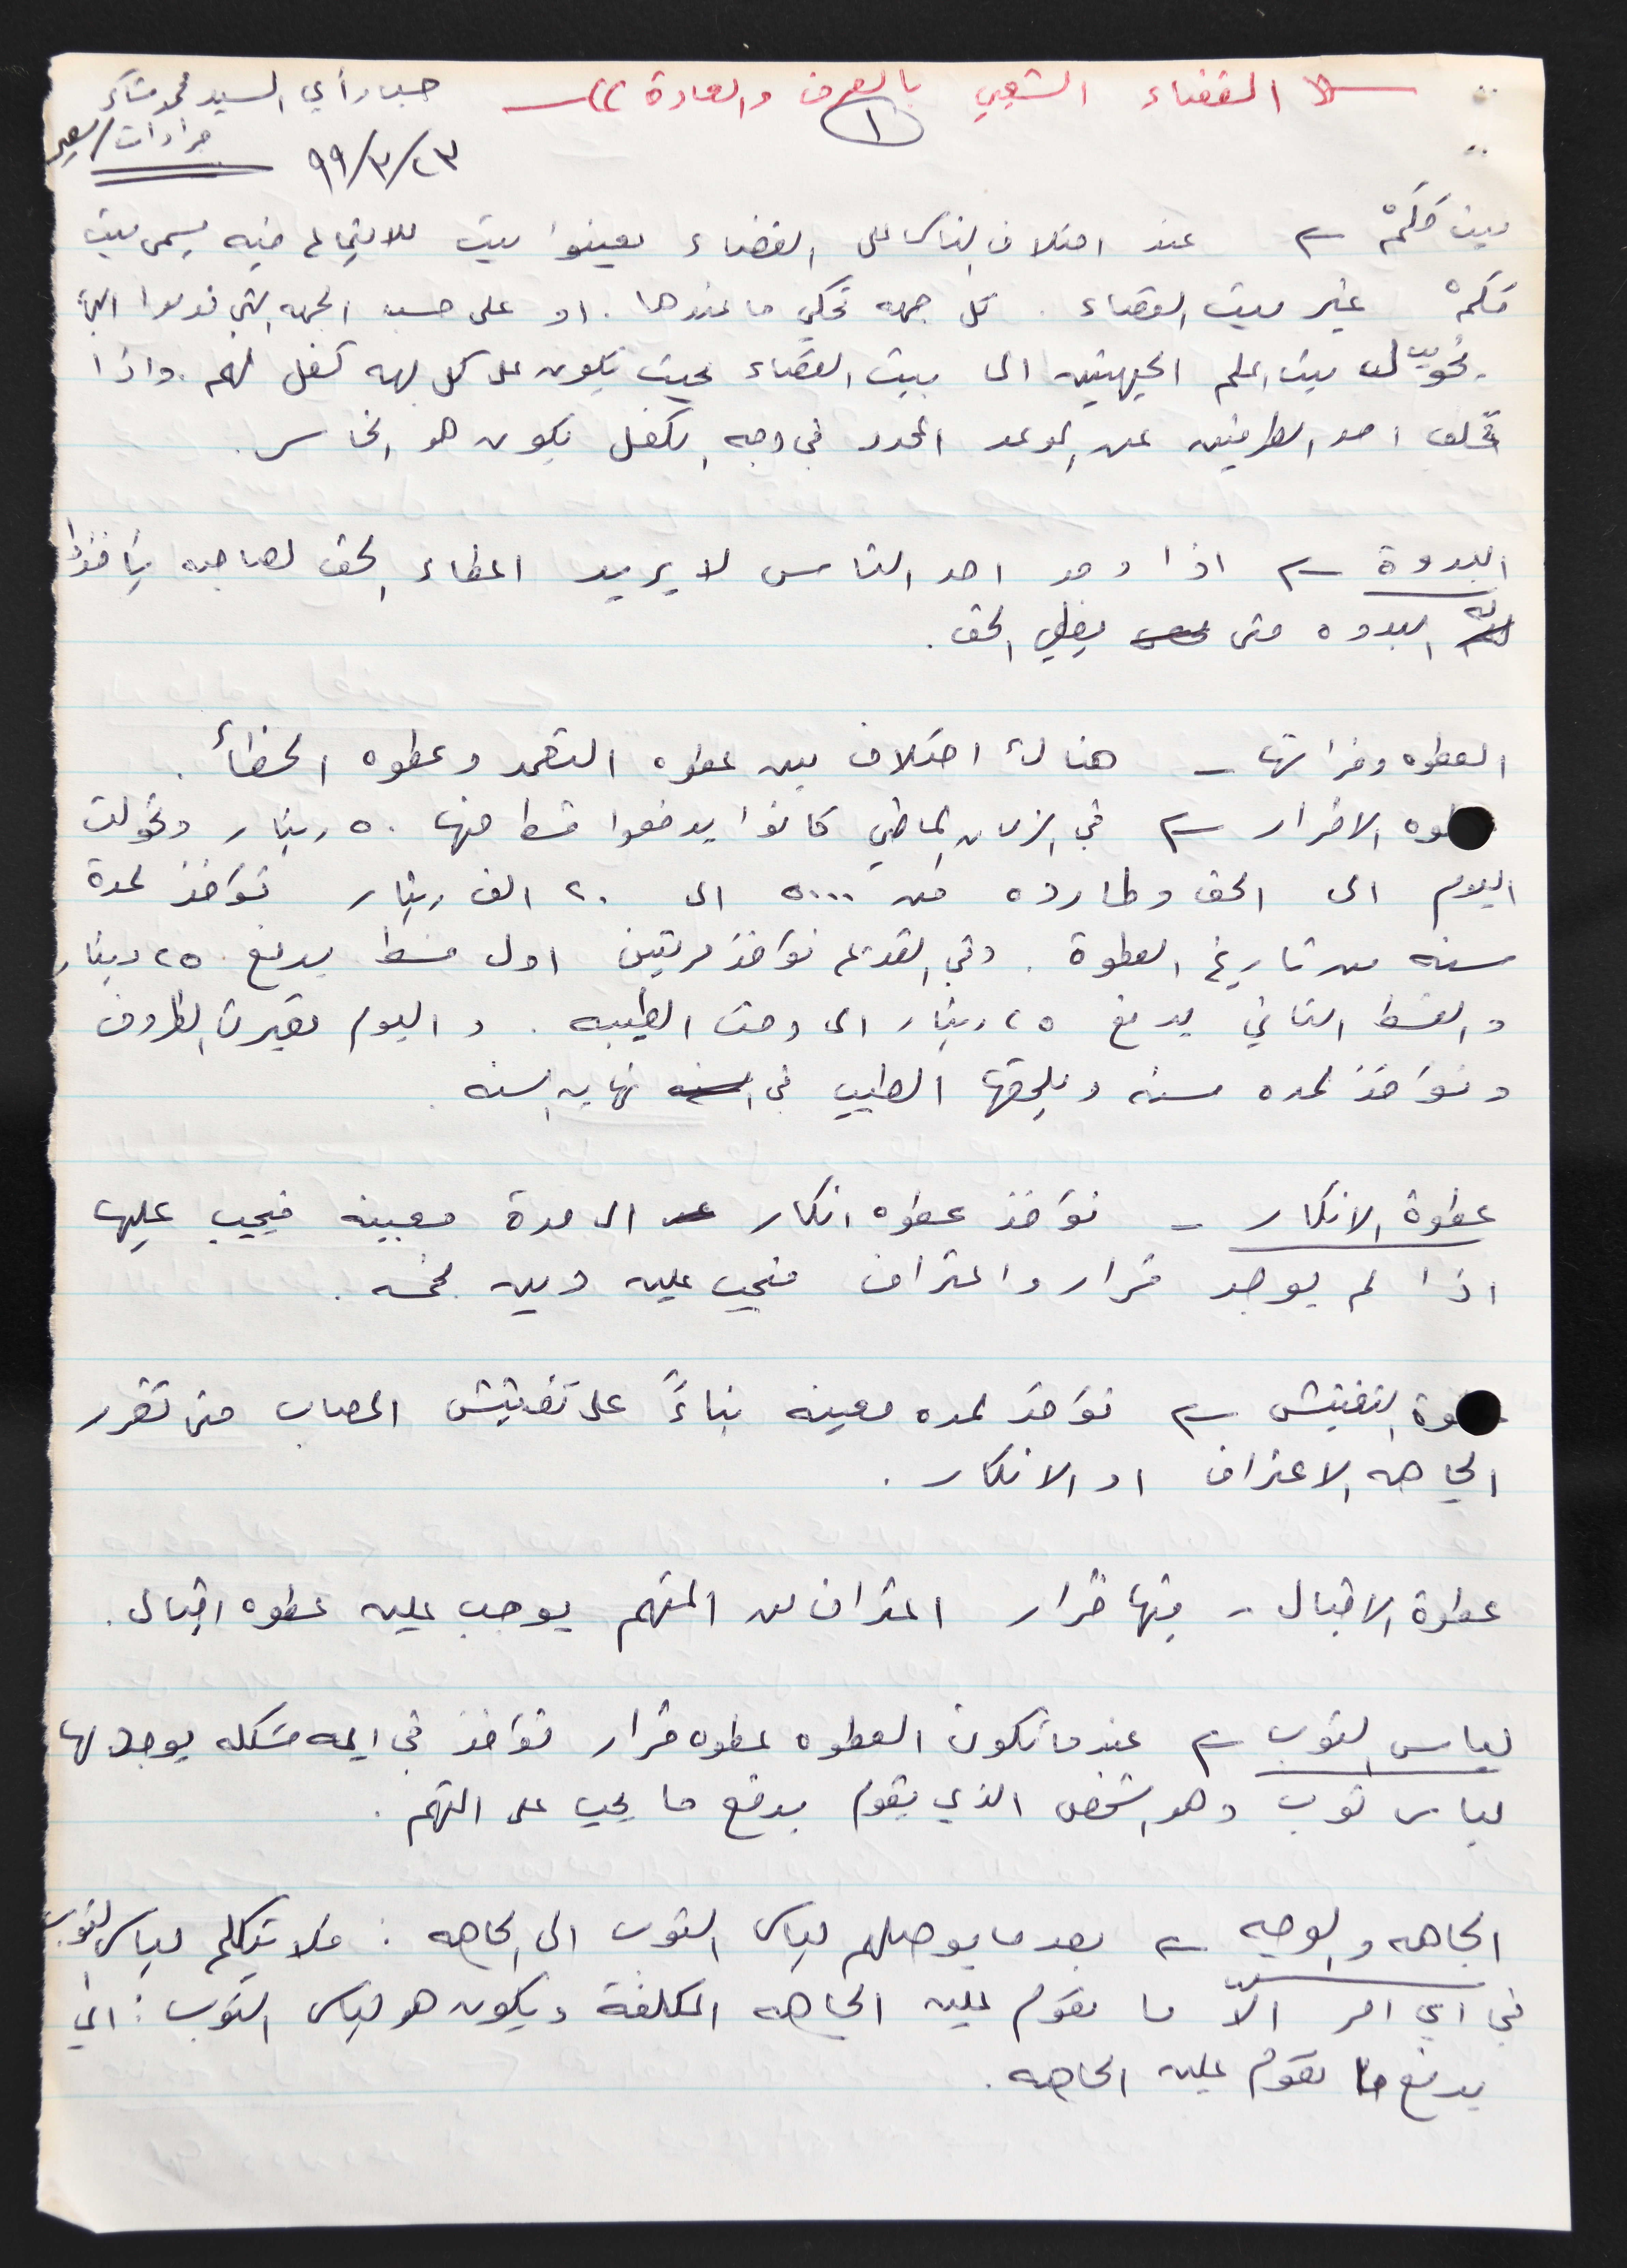 (( القضاء الشعبي بالعرف والعادة ))
حسب رأي السيد محمد شاكر
١
جرادات / سعير
٢٣/٣/٩٩
بيت مَلَمْ ــ عند اختلاف الناس على القضاء يعينوا بيت للاجتماع فيه يسمى بيت
مَلَمْ غير بيت القضاء . كل جهه تحكي ما عندها . او على حسب الجهه التي
يحوّل بيت الملم الجهتين الى بيت القضاء بحيث يكون على كل جهه كفل لهم . واذا
تخلف احد الطرفين عن الموعد المحدد في وجه الكفل يكون هو الخاسر .
البدوة ــ اذا وجد احد الناس لا يريد اعطاء الحق لصاحبه يتاخذوا
البدوه حتى يعطي الحق .
العطوه وفراتها ــ هنالك اختلاف بين عطوه التعمد وعطوه الخطأ .
عطوه الاقرار ــ في الزمان الماضي كانوا يدفعوا قسط منها ٥٠ دينار وتحولت
اليوم الى الحق وطارده من ٥٠٠٠ الى ٢٠ الف دينار تؤخذ لمدة
سنه من تاريخ العطوة . وفي القديم تؤخذ مرتين اول قسط يدفع ٢٥ دينار
و القسط الثاني يدفع ٢٥ دينار الى وقت الطيبه . و اليوم تغيرت الظروف
و تؤخذ لمده سنه ويلحقها الطيب في نهايه السنه .
عطوة الانكار ــ تؤخذ عطوه انكار الى مدة معينه فيجيب عليها
اذا لم يوجد قرار واعتراف فيجب عليه دين بخمسه .
عطوة التفتيش ــ تؤخذ لمده معينه بناءً على تفتيش المصاب حتى تقرر
الجاهه الاعتراف او الانكار .
عطوة الاقبال ــ فيها قرار اعتراف من المتهم يوجب عليه عطوه اقبال .
لباس الثوب ــ عندما تكون العطوه عطوه قرار تؤخذ في ايه مشكله يوجد لها
لباس ثوب وهو الشخص الذي يقوم بدفع ما يجب على المتهم .
الجاهه والوجيه ــ بعد ما يوصلهم لباس الثوب الى الجاهه : فلا يتكلم لباس الثوب
في اي امر الاّ ما تقوم عليه الجاهه المكلفة ويكون هو لباس الثوب : اي
يدفع ما تقوم عليه الجاهه .